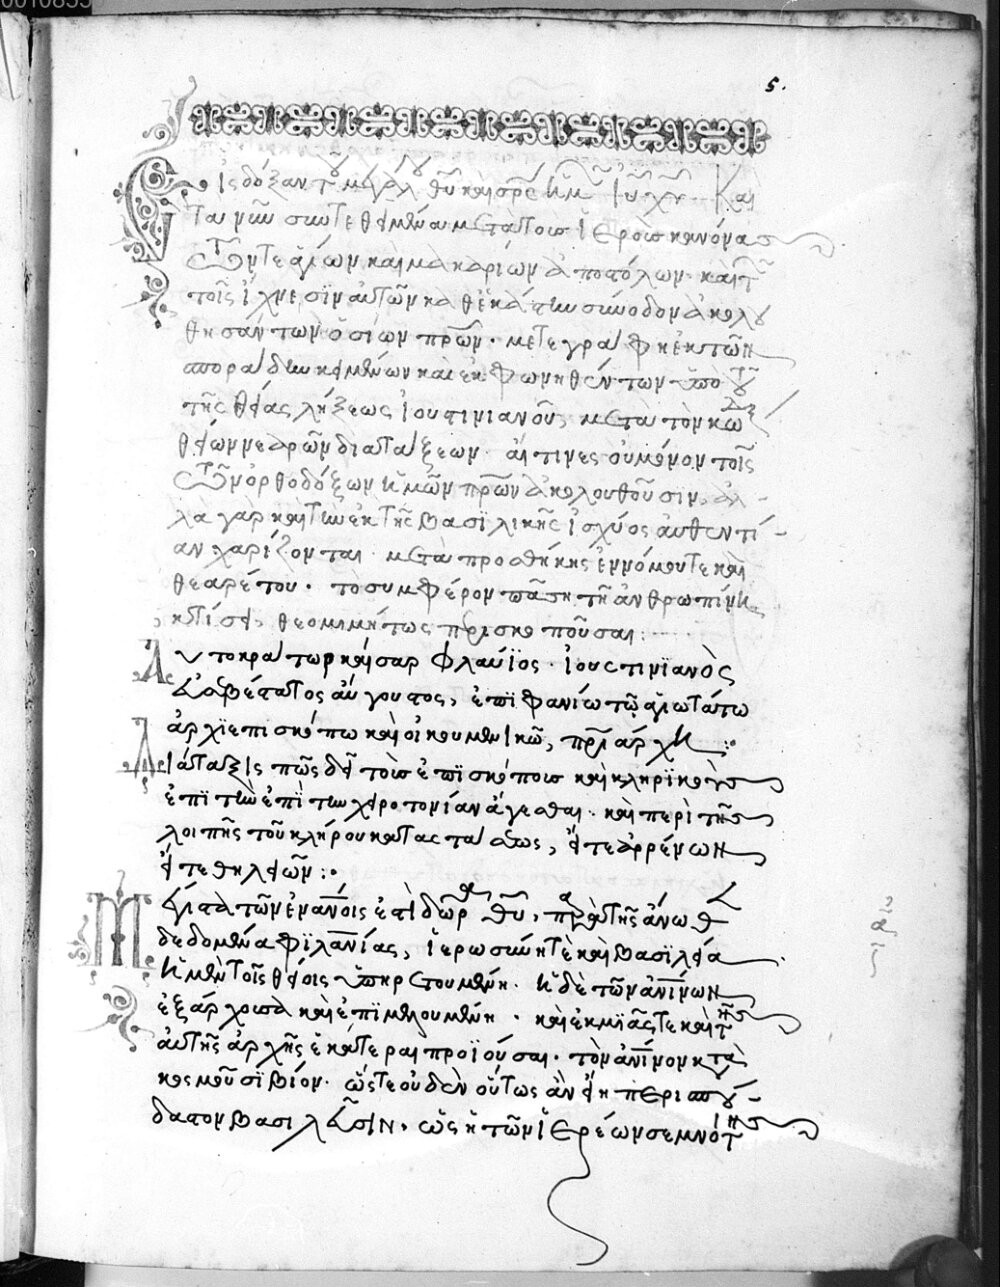 5.
Εἰς δόξαν τοῦ μεγάλου θυ καὶ σρς ἡμῶν ιυ χυ. Καὶ
ται νῦν συντεθημέναι μετὰ τοῖς ἱεροῖς κανόνας
τῶν τε ἁγίων καὶ μακαρίων ἀποστόλων. καὶ τ
τοῖς ἴχνεσιν αὐτῶν καθ' ἑκάστην σύνοδον ἀκολου
θησάντων ὁσίων πρων. μετεγράφη ἐκ τῶν
σποράδην κειμένων καὶ ἐκφωνηθέντων ὑπὸ τοῦ
τῆς θείας λήξεως ἰουστινιανοῦ, μετὰ τὸν κώδ
θείων νεαρῶν διατάξεων. αἵτινες οὐ μόνον τοῖς
τῶν ὀρθοδόξων ἡμῶν πρων ἀκολουθοῦσιν, ἀλ-
λὰ γὰρ καὶ τὴν ἐκ τῆς βασιλικῆς ἰσχύος αὐθεντί-
αν χαρίζονται. μετὰ προσθήκης ἐννόμου τε καὶ
θεαρέστου. τὸ συμφέρον πάση τῆ ἀνθρωπίνη
κτίσει, θεομιμήτως περισκοποῦσαι:
Αυτοκράτωρ καίσαρ φλαύϊος. ἰουστινϊανὸς
σεβέστατος αὔγουστος, ἐπϊφανίω τῶ ἁγιωτάτω
ἀρχϊεπισκόπω καὶ οἰκουμενικῶ, πρϊάρχη:
Διάταξις πῶς δεῖ τοῖς ἐπϊσκόποις καὶ κληρϊκοὺς
ἐπϊ τὴν ἐπὶ τὴν χειροτονίαν ἄγεσθαι. καὶ περὶ τῆς
λοιπῆς τοῦ κλήρου καταστάσεως, εἴτε ἀρρένων
εἴτε θηλειῶν:
Μέγιστα τῶν ἐν ανοις ἐστὶ δῶρα θυ, παρὰ τῆς ἄνωθεν
δεδομένα φϊλανίας, ἱερωσύνη τὲ καὶ βασϊλεία
ἡ μὲν τοῖς θείοις ὑπηρετουμένη. ἡ δὲ τῶν ἀνίνων
ἐξάρχουσα καὶ ἐπϊμελουμένη. καὶ ἐκ μϊᾶς τε καὶ τῆς
αὐτῆς ἀρχῆς ἑκάτεραι προϊοῦσαι. τὸν ἀνίνον κατα
κοσμοῦσϊ βίον. ὥστε οὐδὲν οὕτως ἂν εἴη περισπού-
δαστον βασιλεῦσιν, ὡς ἡ τῶν ἱερέων σεμνότης